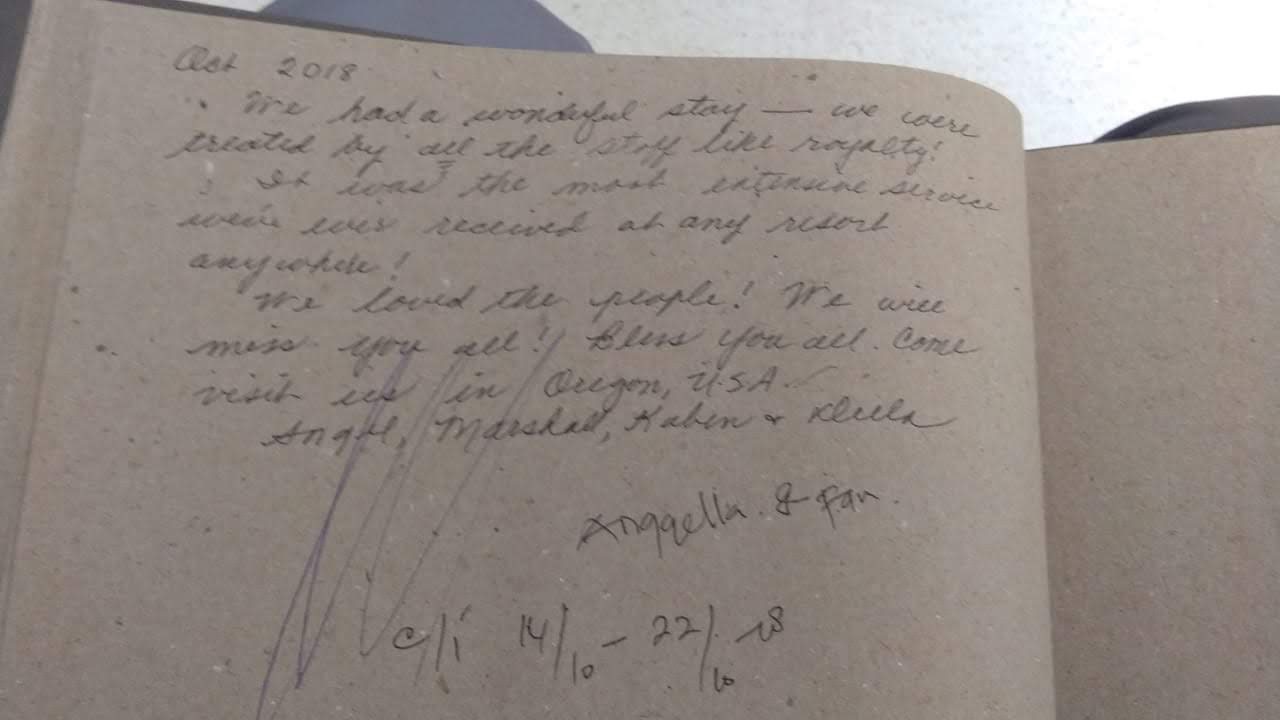 Oct 2018
We had a wonderful stay — we were
treated by all the staff like royalty!
It was the most intensive service
we've ever received at any resort
anywhere!
We loved the people! We will
miss you all! Bless you all. Come
visit us in Oregon, U.S.A.
Angel, Marshall, Kaben &
Anggella & Fam.
c/i 14/10 - 22/10 18